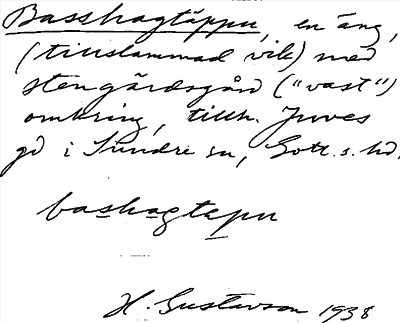 Basshagtäppu, en äng,
(tillslammad vik) med
stengärdsgård ("vast")
omkring, tillh. Juves
gd i Sundre sn, Gotl. s. hd.
bashagtepu
H. Gustavson 1938